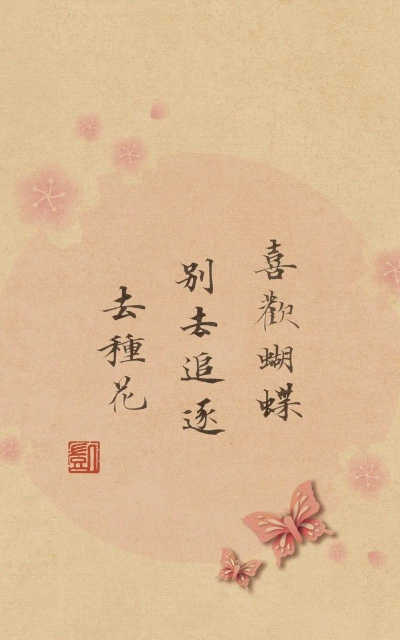 喜歡蝴蝶
别去追逐
去種花